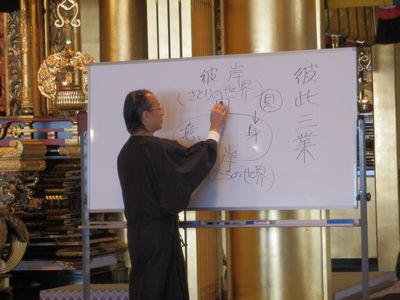 彼此三業
彼岸
(さとりの世界)
見
意 身
岸
ちの世界)